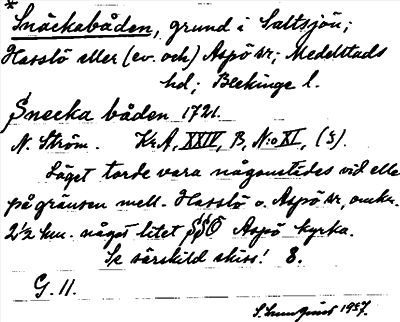 * Snäckabåden, grund i Saltsjön;
Hasslö eller (ev. och) Aspö sr; Medelstads
hd; Blekinge l.
Snecka båden 1721.
N. Ström. KrA, XXIV, B, N:o XI, (s).
Läget torde vara någonstädes vid elle
på gränsen mell. Hasslö o. Aspö sr, omkr.
2 1/2 km. något litet SSO Aspö kyrka.
Se särskild skiss! E.
G. 11.
S. Lundquist 1957.